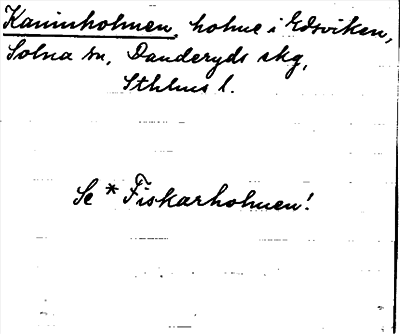 Kaninholmen, holme i Edsviken,
Solna sn, Danderyds skg,
Sthlms l.
Se * Fiskarholmen!